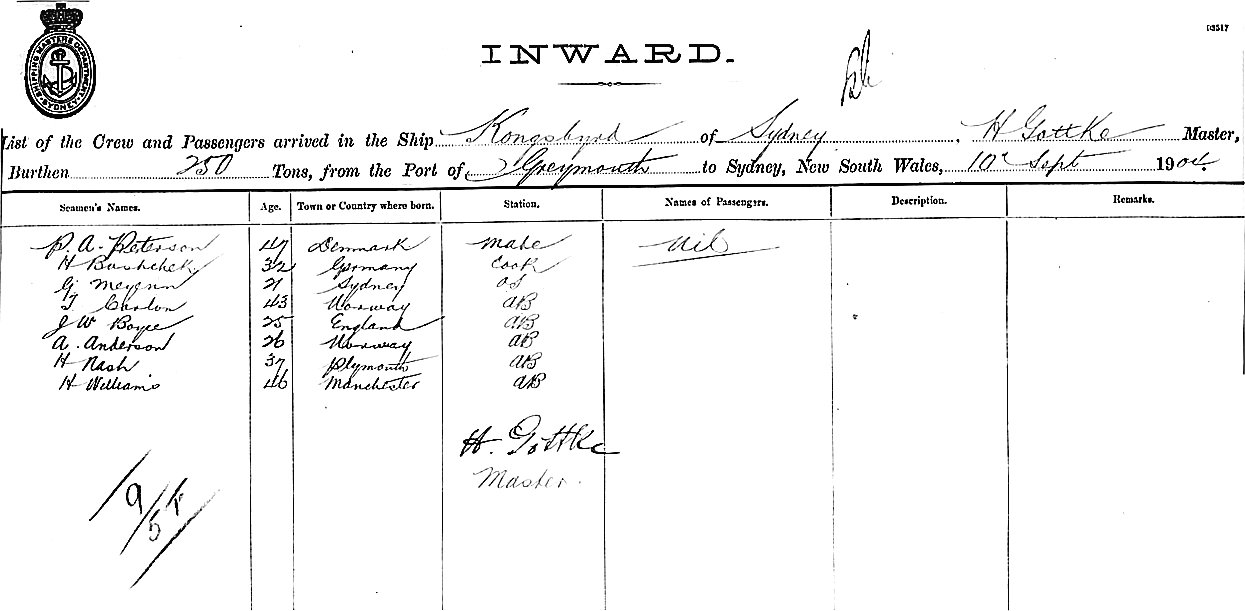 SHIPPING MASTERS DEPARTMENT SYDNEY
03517
INWARD.
List of the Crew and Passengers arrived in the Ship Kongsbyrd of Sydney, H Gottke Master,
Burthen 250 Tons, from the Port of Greymouth to Sydney, New South Wales, 10 Sept 1904
Seamen's Names. Age. Town or Country where born. Station. Names of Passengers. Description. Remarks.
P. A. Peterson 47 Denmark Mate Nil
H 32 Germany Cook
G Meyenn 21 Sydney OS
43 Norway AB
J W Boyce 25 England AB
A. Anderson 26 Norway AB
H Nash 37 Plymouth AB
H Williams 46 Manchester AB
H. Gottke
Master.
9/5